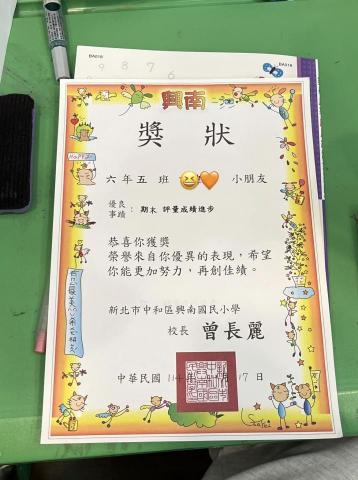 BA01B
BA01B
9 8 7 6
興南
獎 狀
HAPPY
六年五班 小朋友
優良事蹟：期末 評量成績進步
恭喜你獲獎
榮譽來自你優異的表現，希望
你能更加努力，再創佳績。
新北市中和區興南國民小學
校長 曾長麗
中華民國 11 17 日